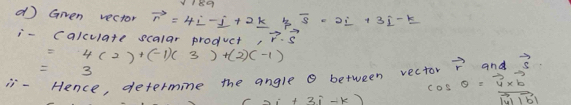 √189
d) Given vector r = 4i - j + 2k & s = 2i + 3j - k
i- Calculate scalar product, r·s
= 4(2)+(-1)(3)+(2)(-1)
= 3
ii- Hence, determine the angle θ between vector r and s
cos θ = u × b
|u||b|
(2i + 3j - k)